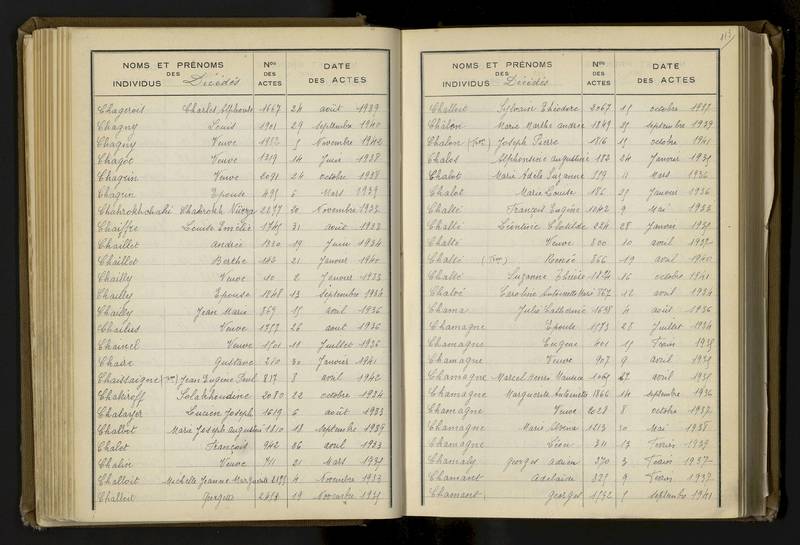 NOMS ET PRÉNOMS
DES
INDIVIDUS Décédés
Nos
DES
ACTES
DATE
DES ACTES
Chagerois Charles Alphonse 1667 24 août 1939
Chagny Louis 1901 29 septembre 1940
Chagny Veuve 5 Novembre 1942
Chagot Veuve 1219 14 Juin 1938
Chagrin Veuve 2091 24 octobre 1938
Chagrin Epouse 495 6 Mars 1939
Chahrokhchahi Chahrokh 2277 20 Novembre 1933
Chaiffre Louise Emélie 1745 31 août 1938
Chaillet Andrée 1320 19 Juin 1934
Chaillet Berthe 143 21 Janvier 1940
Chailly Veuve 10 2 Janvier 1933
Chailly Epouse 1848 13 septembre 1934
Chailly Jean Marie 869 15 avril 1936
Chailus Veuve 26 août 1936
Chainel Veuve 1501 11 Juillet 1936
Chaire Gustave 210 30 Janvier 1941
Chaissaigne Jean Eugène Paul 837 8 avril 1942
Chakiroff Salakhoudine 2080 22 octobre 1934
Chalayer Lucien Joseph 1619 6 août 1933
Chalbot Marie Joseph Augustin 1810 18 septembre 1939
Chalet François 942 26 avril 1933
Chalin Veuve 711 21 Mars 1935
Challoit Michelle Jeanne Marguerite 4 Novembre 1933
Challoit Georges 19 Novembre 1935
113
NOMS ET PRÉNOMS
DES
INDIVIDUS Décédés
Nos
DES
ACTES
DATE
DES ACTES
Challoit Sylvain Théodore 2067 15 octobre 1937
Châlon Marie Marthe Andrée 1849 25 septembre 1939
Chalon Joseph Pierre 1816 15 octobre 1941
Chalos Alphonsine Augustine 183 24 Janvier 1935
Chalot Marie Adèle Suzanne 559 11 Mars 1936
Chalot Marie Louise 186 25 Janvier 1936
Chalté François Eugène 1042 9 Mai 1933
Chalté Léontine Clotilde 224 28 Janvier
Chalté Veuve 800 10 avril 1937
Chalté Renée 866 19 avril 1940
Chalté Suzanne Thérèse 1874 16 octobre 1941
Chalvé Caroline Antoinette Marie 767 12 avril 1934
Chama Julie Catherine 1638 4 août 1936
Chamagne Epouse 1573 28 Juillet 1934
Chamagne Eugène 401 15 1935
Chamagne Veuve 907 9 avril 1935
Chamagne Marcel Henri Maurice avril 1935
Chamagne Marguerite Antoinette 1866 14 septembre 1936
Chamagne Veuve 2028 8 octobre 1937
Chamagne Marie 1213 30 Mai 1938
Chamagne Léon 311 13 1939
Chamaly Georges 370 3 1937
Chamant Adélaïde 325 9 1937
Chamant Georges 1592 5 septembre 1941